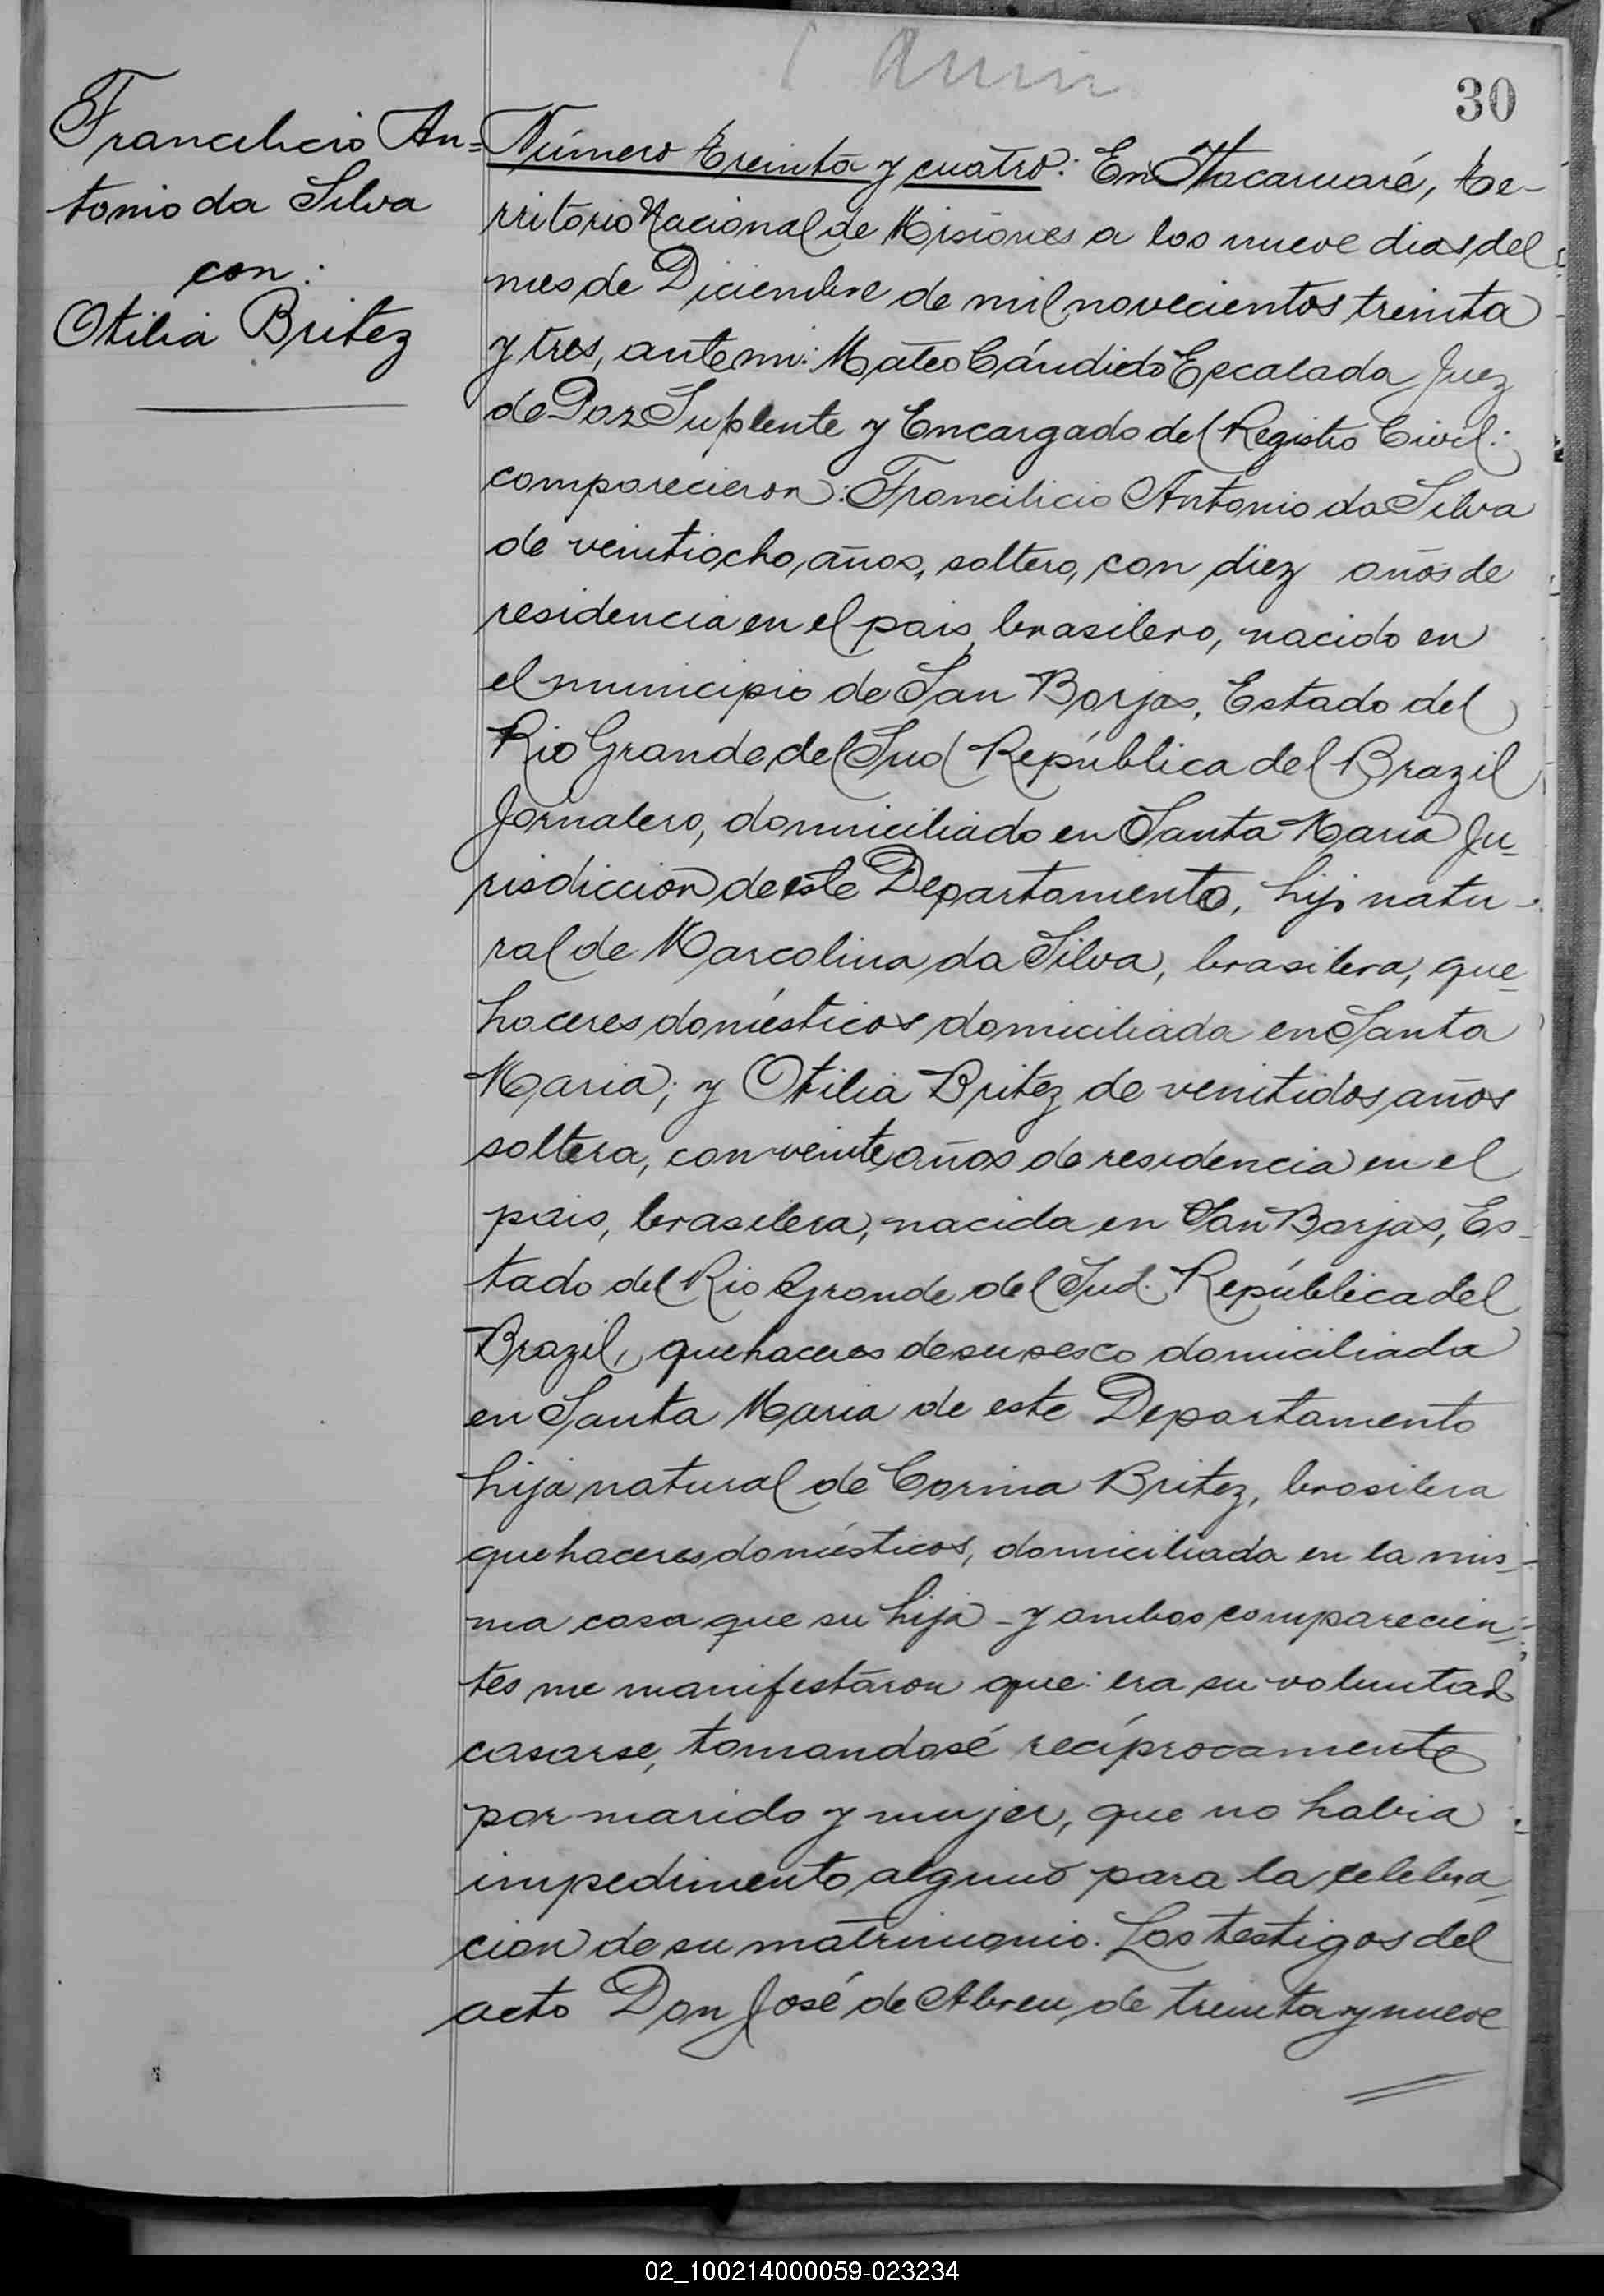 30
Francilicio An=
tonio da Silva
con:
Otilia Britez
Número treinta y cuatro: En Itacaruaré, te-
rritorio Nacional de Misiones a los nueve dias del
mes de Diciembre de mil novecientos treinta
y tres, ante mi: Mateo Cándido Escalada Juez
de Paz Suplente y Encargado del Registro Civil:
comparecieron: Francilicio Antonio da Silva
de veintiocho años, soltero, con diez años de
residencia en el pais, brasilero, nacido en
el municipio de San Borjas, Estado del
Rio Grande del Sud República del Brazil
Jornalero, domiciliado en Santa Maria Ju-
risdiccion de este Departamento, hijo natu-
ral de Marcolina da Silva, brasilera, que-
haceres domésticos domiciliada en Santa
Maria; y Otilia Britez de veintidos años
soltera, con veinte años de residencia en el
pais, brasilera, nacida en San Borjas, Es-
tado del Rio Grande del Sud. República del
Brazil, quehaceres de su sesco domiciliada
en Santa Maria de este Departamento
hija natural de Corina Britez, brasilera
quehaceres domésticos, domiciliada en la mis-
ma casa que su hija - y ambos comparecien-
tes me manifestaron que: era su voluntad
casarse, tomandosé recíprocamente
por marido y mujer, que no habia
impedimento alguno para la celebra-
cion de su matrimonio. Los testigos del
acto Don José de Abreu, de treinta y nueve
02_100214000059-023234